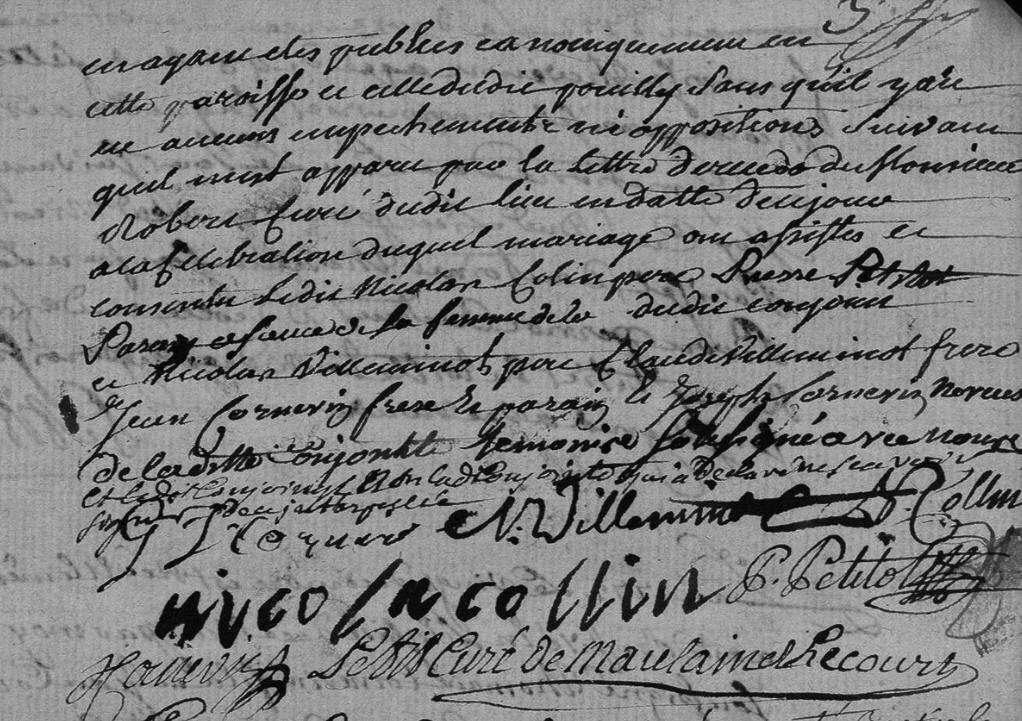 ayant été publiés canoniquement en
cette paroisse et celle dudit pouilly sans qu'il y ait
eu aucuns empechements ni oppositions suivant
qu'il m'est apparu par la lettre de Monsieur
Robert Curé dudit lieu en datte de ce jour
a la Celebration duquel mariage ont assistes et
consentu Ledit Nicolas Colin pere Pierre Petitot
Parain a cause de la femme dudit conjoint
et Nicolas Villeminot pere Claude Villeminot frere
Jean Cornevin frere et parain et Joseph Cornevin
de laditte conjointe temoins soussigné avec nous
et ledit Conjoint Non ladte Conjointe qui a Declaré ne scavoir
signer de ce interpellée
N. Villeminot N. Collin
nicolas collin P. Petitot
Petit Curé de Maulain et Recourt